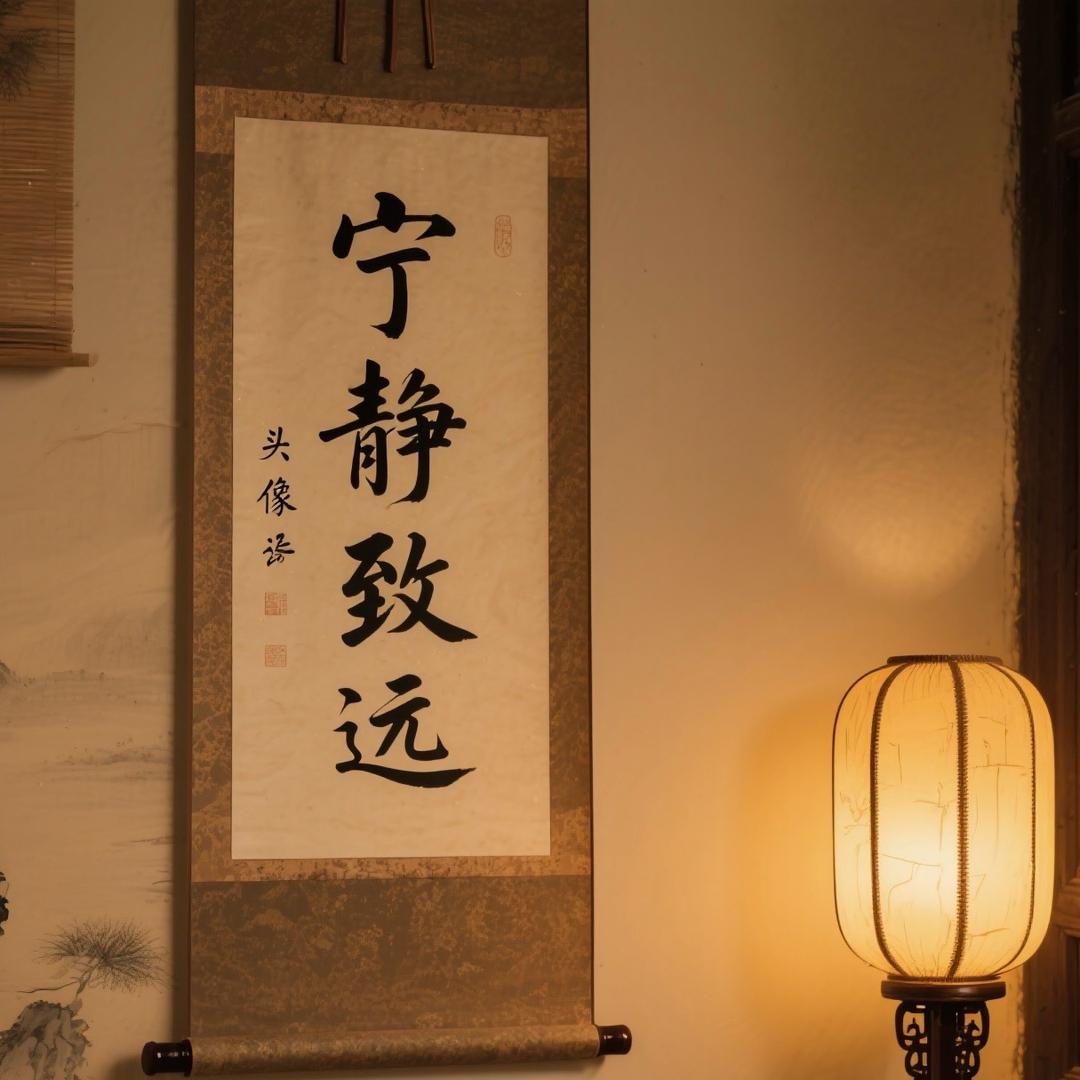 宁静致远
头像